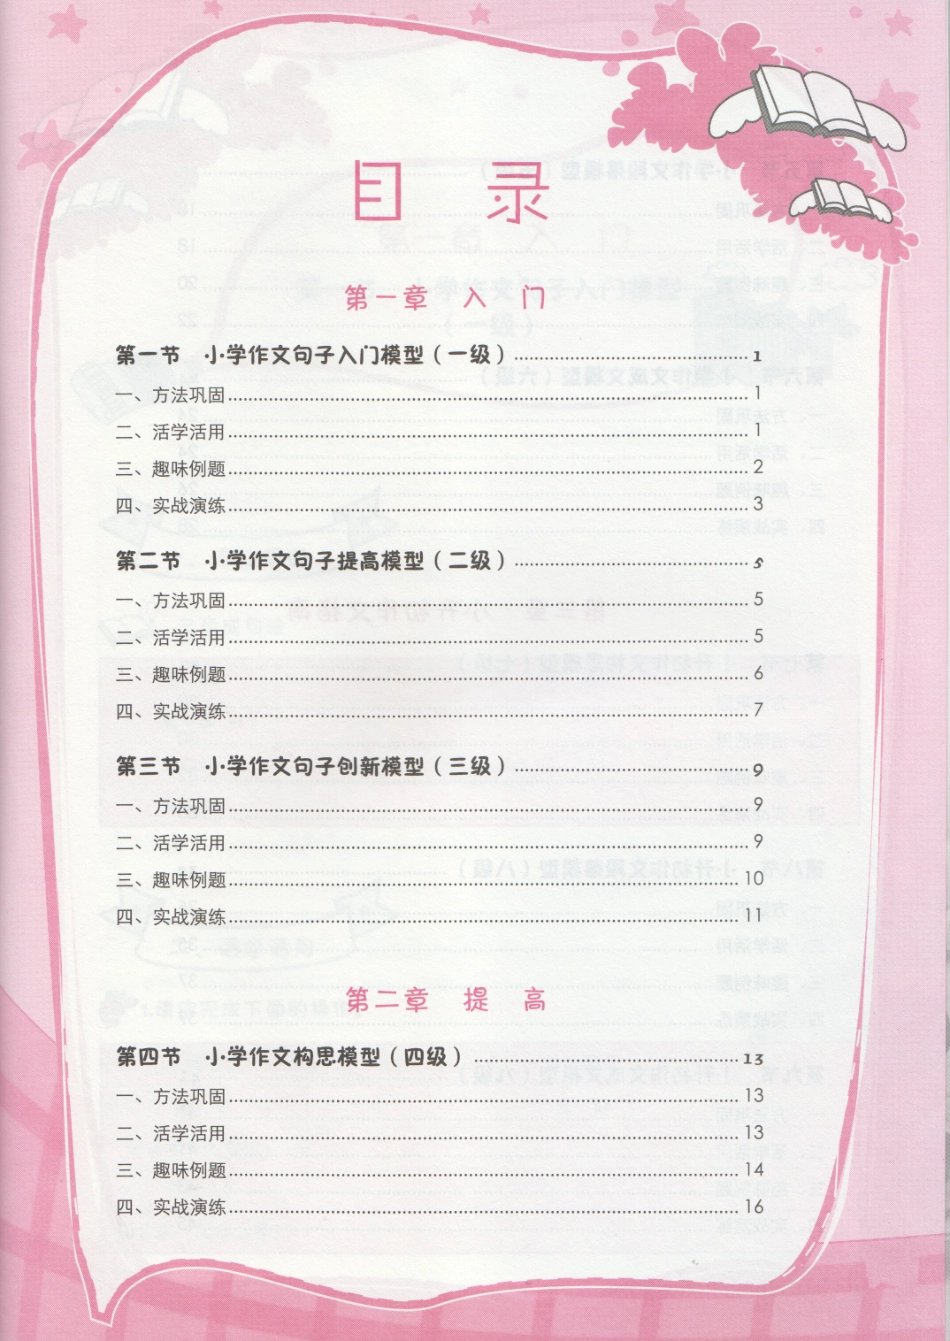 目 录
第一章 入 门
第一节 小学作文句子入门模型（一级）……1
一、方法巩固……1
二、活学活用……1
三、趣味例题……2
四、实战演练……3
第二节 小学作文句子提高模型（二级）……5
一、方法巩固……5
二、活学活用……5
三、趣味例题……6
四、实战演练……7
第三节 小学作文句子创新模型（三级）……9
一、方法巩固……9
二、活学活用……9
三、趣味例题……10
四、实战演练……11
第二章 提 高
第四节 小学作文构思模型（四级）……13
一、方法巩固……13
二、活学活用……13
三、趣味例题……14
四、实战演练……16